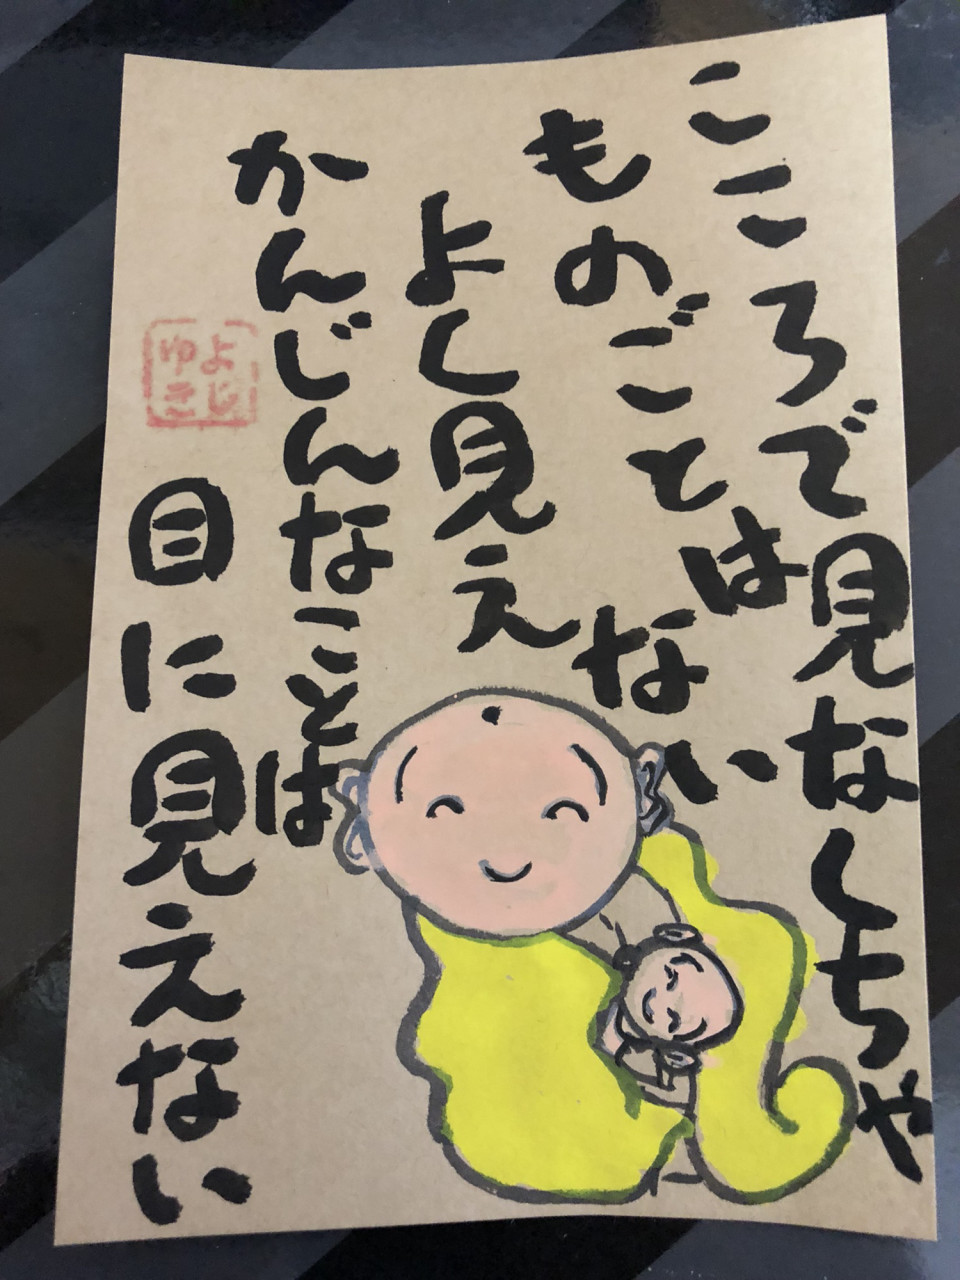 こころで見なくちゃ
ものごとはない
よく見え
かんじんなことは
目に見えない
よじ
ゆき